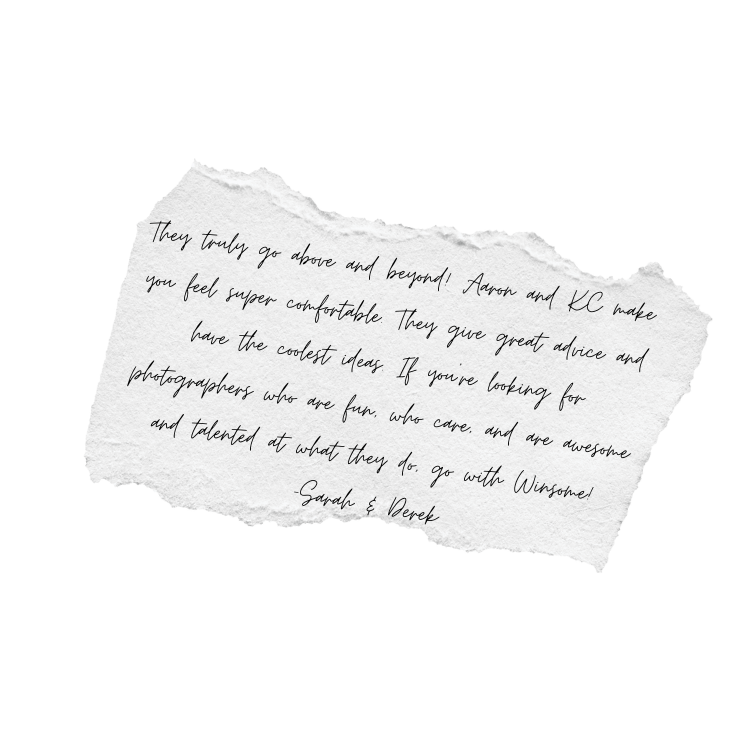 They truly go above and beyond! Aaron and KC make
you feel super comfortable. They give great advice and
have the coolest ideas. If you're looking for
photographers who are fun, who care, and are awesome
and talented at what they do, go with Winsome!
-Sarah & Derek